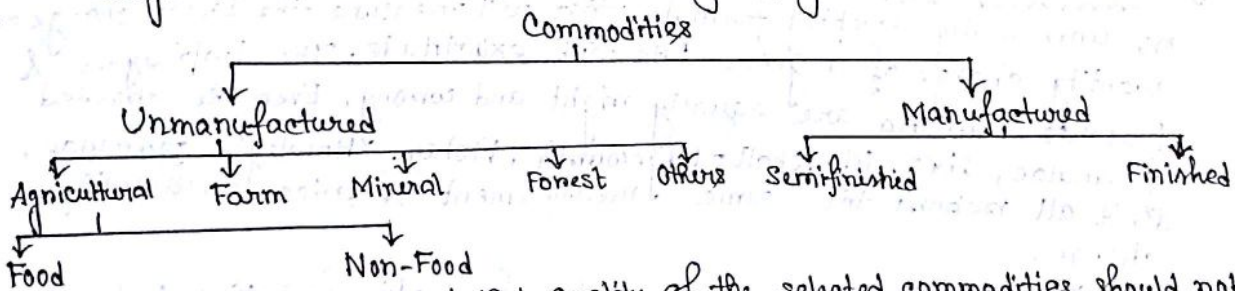 Commodities
Unmanufactured Manufactured
Agricultural Farm Mineral Forest Others Semifinished Finished
Food Non-Food
quality of the selected commodities should not